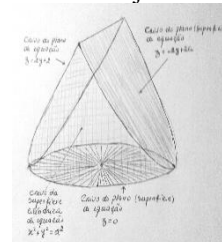 Caixa do plano
de equação
z = 2y+2
Caixa do plano (superfície)
de equação
Caixa da
superfície
cilíndrica
de equação
x² + y² = a²
Caixa do plano (superfície)
de equação
z = 0